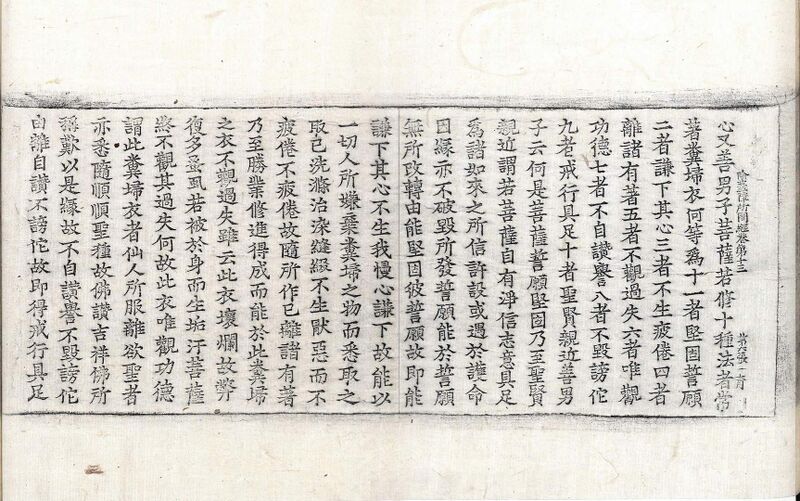 心又善男子菩薩若修十種法者常
除蓋障所問經卷第十三
著糞埽衣何等為十一者堅固誓願
二者謙下其心三者不生疲倦四者
離諸有著五者不觀過失六者唯觀
功德七者不自讚譽八者不毀謗佗
九者戒行具足十者聖賢親近善男
子云何是菩薩誓願堅固乃至聖賢
親近謂若菩薩自有淨信志意具足
為諸如來之所信許設或遇於護命
因緣亦不破毀所發誓願能於誓願
無所改轉由能堅固彼誓願故即能
謙下其心不生我慢心謙下故能以
一切人所嫌棄糞埽之物而悉取之
取已洗滌治染縫綴不生猒惡而不
疲倦不疲倦故隨所作已離諸有著
乃至勝業修進得成而能於此糞埽
之衣不觀過失雖云此衣壞爛故弊
復多蟣虱若被於身而生垢汙菩薩
終不觀其過失何故此衣唯觀功德
謂此糞埽衣者仙人所服離欲聖者
亦悉隨順順聖種故佛讚吉祥佛所
稱歎以是緣故不自讚譽不毀謗佗
由離自讚不謗佗故即得戒行具足